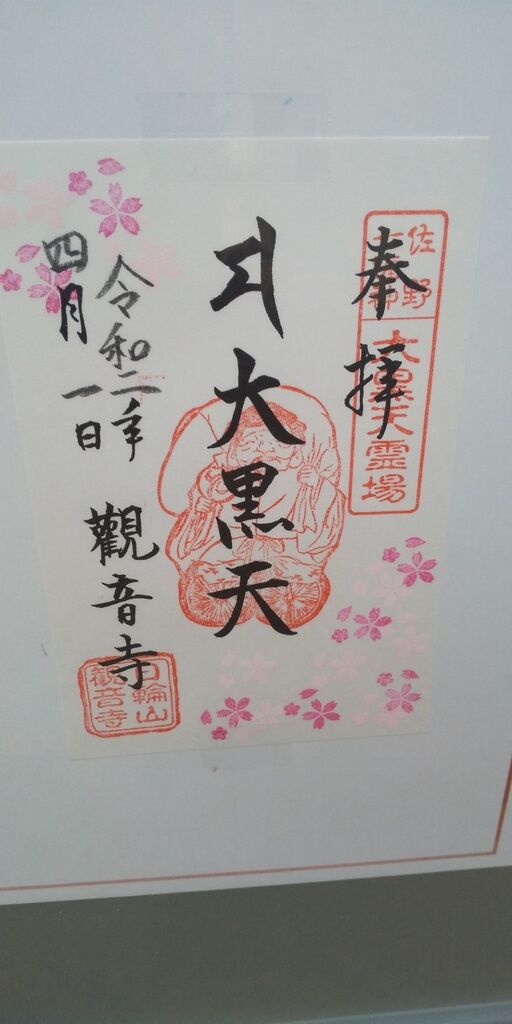 奉拝
佐野
大黒天霊場
大黒天
令和二年
四月一日
觀音寺
日輪山
觀音寺